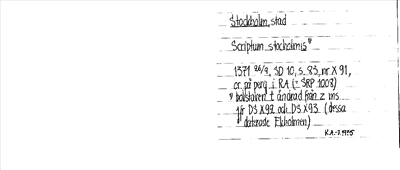 Stockholm, stad
Scriptum stocholmis*
1371 26/9, SD 10, s 83, nr X 91,
or. på perg. i RA (= SRP 1003)
* bokstaven t ändrad från z ms
jfr DS X92 och DS X93 (dessa
daterade Ekholmen)